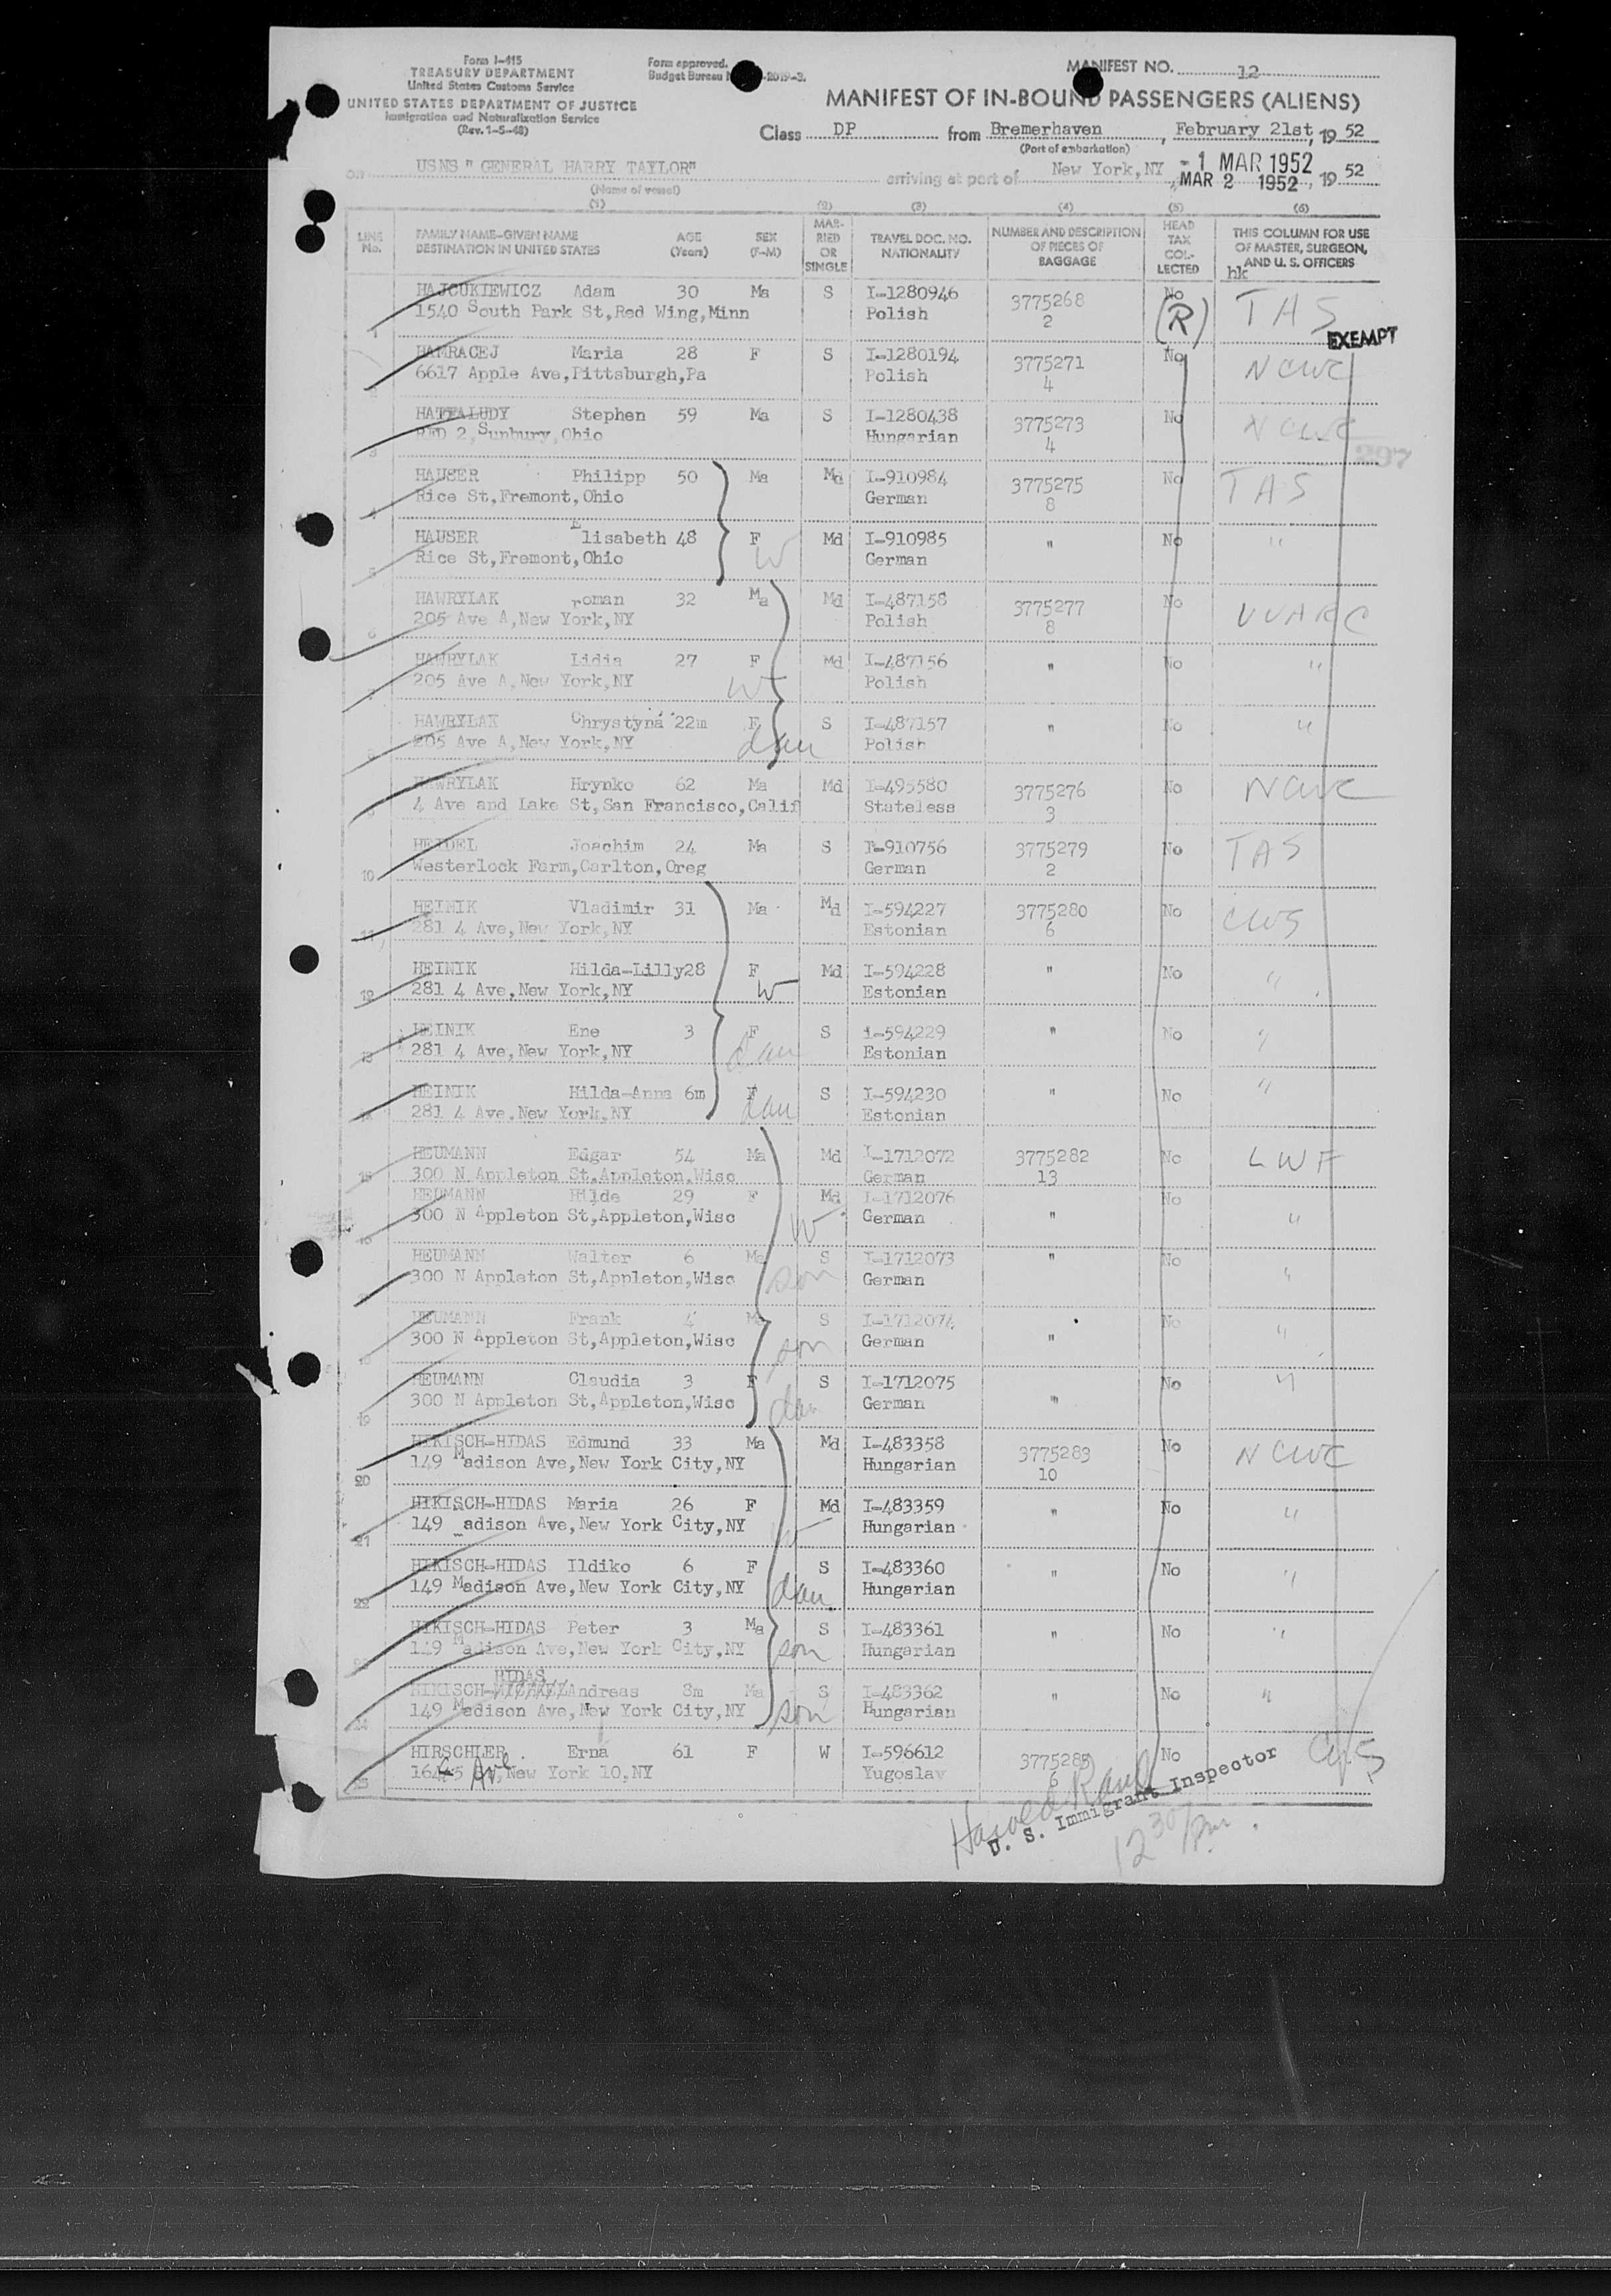 Form I-415
TREASURY DEPARTMENT
United States Customs Service
UNITED STATES DEPARTMENT OF JUSTICE
Immigration and Naturalization Service
(Rev. 1-5-48)
Form approved.
Budget Bureau N -2019-3.
MANIFEST NO. 12
MANIFEST OF IN-BOUND PASSENGERS (ALIENS)
Class DP from Bremerhaven, February 21st, 19 52
(Port of embarkation)
on USNS " GENERAL HARRY TAYLOR" arriving at port of New York, NY - 1 MAR 1952
MAR 2 1952, 19 52
(Name of vessel)
(1) (2) (3) (4) (5) (6)
LINE No. FAMILY NAME-GIVEN NAME DESTINATION IN UNITED STATES AGE (Years) SEX (F-M) MARRIED OR SINGLE TRAVEL DOC. NO. NATIONALITY NUMBER AND DESCRIPTION OF PIECES OF BAGGAGE HEAD TAX COL-LECTED THIS COLUMN FOR USE OF MASTER, SURGEON, AND U. S. OFFICERS
hk
HAJCUKIEWICZ Adam 30 Ma S I-1280946 3775268 No TAS
1 1540 South Park St,Red Wing,Minn Polish 2 (R)
EXEMPT
HAMRACEJ Maria 28 F S I-1280194 3775271 No NCWC
6617 Apple Ave,Pittsburgh,Pa Polish 4
HATFALUDY Stephen 59 Ma S I-1280438 3775273 No NCWC
3 RFD 2,Sunbury,Ohio Hungarian 4
297
HAUSER Philipp 50 Ma Md I-910984 3775275 No TAS
4 Rice St,Fremont,Ohio German 8
HAUSER Elisabeth 48 F Md I-910985 " No "
5 Rice St,Fremont,Ohio W German
HAWRYLAK roman 32 Ma Md I-487158 3775277 No UUARC
6 205 Ave A,New York,NY Polish 8
HAWRYLAK Lidia 27 F Md I-487156 " No "
205 Ave A,New York,NY W Polish
HAWRYLAK Chrystyna 22m F S I-487157 " No "
8 205 Ave A,New York,NY dau Polish
HAWRYLAK Hrynko 62 Ma Md I-495580 3775276 No NCWC
9 4 Ave and Lake St,San Francisco,Calif Stateless 3
HEIDEL Joachim 24 Ma S I-910756 3775279 No TAS
10 Westerlock Farm,Carlton,Oreg German 2
HEINIK Vladimir 31 Ma Md I-594227 3775280 No CWS
11 281 4 Ave,New York,NY Estonian 6
HEINIK Hilda-Lilly 28 F Md I-594228 " No "
12 281 4 Ave,New York,NY W Estonian
HEINIK Ene 3 F S I-594229 " No "
13 281 4 Ave,New York,NY dau Estonian
HEINIK Hilda-Anna 6m F S I-594230 " No "
14 281 4 Ave,New York,NY dau Estonian
HEUMANN Edgar 54 Ma Md I-1712072 3775282 No LWF
15 300 N Appleton St,Appleton,Wisc German 13
HEUMANN Hilde 29 F Md I-1712076 No
16 300 N Appleton St,Appleton,Wisc W German " "
HEUMANN Walter 6 Ma S I-1712073 " No
300 N Appleton St,Appleton,Wisc son German "
HEUMANN Frank 4 Ma S I-1712074 No
18 300 N Appleton St,Appleton,Wisc son German " "
HEUMANN Claudia 3 F S I-1712075 No "
19 300 N Appleton St,Appleton,Wisc dau German "
HIKISCH-HIDAS Edmund 33 Ma Md I-483358 3775283 No NCWC
20 149 Madison Ave,New York City,NY Hungarian 10
HIKISCH-HIDAS Maria 26 F Md I-483359 " No "
21 149 adison Ave,New York City,NY W Hungarian
HIKISCH-HIDAS Ildiko 6 F S I-483360 " No "
22 149 Madison Ave,New York City,NY dau Hungarian
HIKISCH-HIDAS Peter 3 Ma S I-483361 " No "
23 149 Madison Ave,New York City,NY son Hungarian
HIDAS
HIKISCH- Andreas 8m Ma S I-483362 " No "
24 149 Madison Ave,New York City,NY son Hungarian
HIRSCHLER Erna 61 F W I-596612 3775285 No CWS
25 Ave,New York 10,NY Yugoslav 6
Harold
U. S. Immigrant Inspector
12 30 Pm